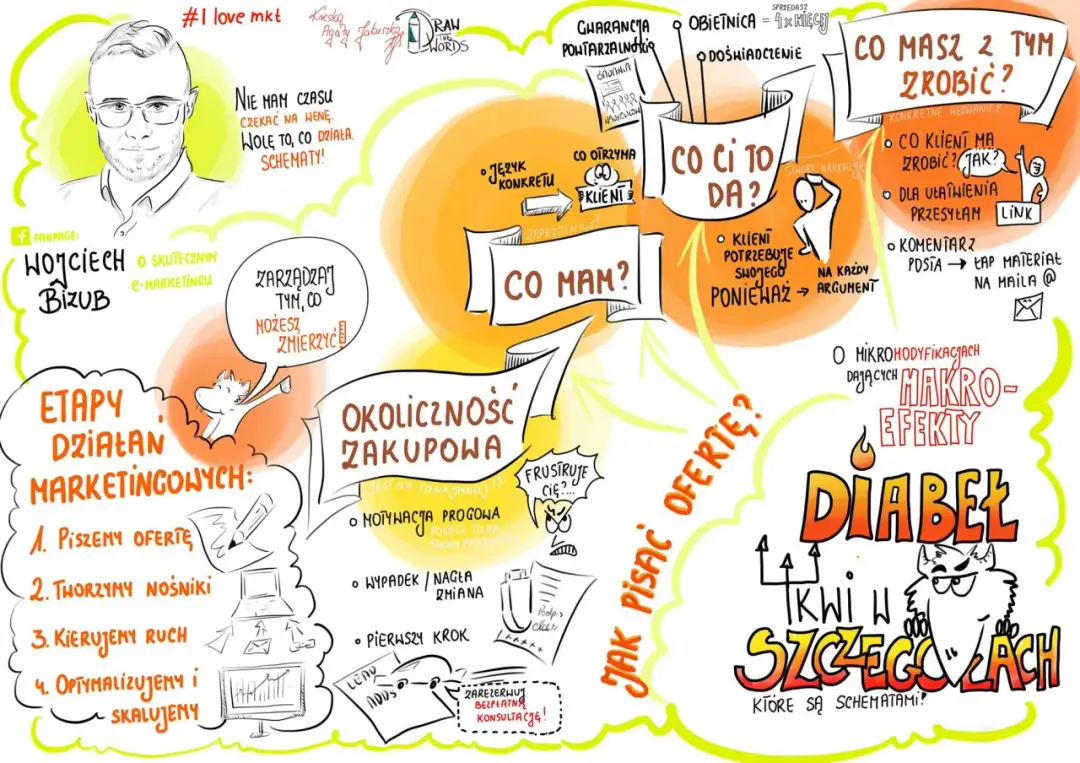 #I love mkt
Kreską
Agaty
DRAW
THE
WORDS
NIE MAM CZASU
CZEKAĆ NA WENĘ.
WOLĘ TO, CO DZIAŁA.
SCHEMATY!
f FANPAGE:
WOJCIECH
BIZUB
O SKUTECZNYM
e-MARKETINGU
ZARZĄDZAJ
TYM, CO
MOŻESZ
ZMIERZYĆ!
ETAPY
DZIAŁAŃ
MARKETINGOWYCH:
1. PISZEMY OFERTĘ
2. TWORZYMY NOŚNIKI
3. KIERUJEMY RUCH
4. OPTYMALIZUJEMY I
SKALUJEMY
JAK PISAĆ OFERTĘ?
OKOLICZNOŚĆ
ZAKUPOWA
FRUSTRUJE
CIĘ?...
• MOTYWACJA PROGOWA
• WYPADEK / NAGŁA
ZMIANA
• PIERWSZY KROK
LEAD
ADDS
ZAREZERWUJ
BEZPŁATNĄ
KONSULTACJĘ!
CO MAM?
• JĘZYK
KONKRETU
CO OTRZYMA
KLIENT
CO CI TO
DA?
GWARANCJA
POWTARZALNOŚCI
BADANIA
OBIETNICA = SPRZEDASZ
4x WIĘCEJ
DOŚWIADCZENIE
• KLIENT
POTRZEBUJE
SWOJEGO
PONIEWAŻ → NA KAŻDY
ARGUMENT
CO MASZ Z TYM
ZROBIĆ?
KONKRETNE WEZWANIE?
• CO KLIENT MA
ZROBIĆ? JAK?
• DLA UŁATWIENIA
PRZESYŁAM LINK
• KOMENTARZ
POSTA → ŁAP MATERIAŁ
NA MAILA @
O MIKROMODYFIKACJACH
DAJĄCYCH MAKRO-
EFEKTY
DIABEŁ
TKWI W
SZCZEGÓŁACH
KTÓRE SĄ SCHEMATAMI!